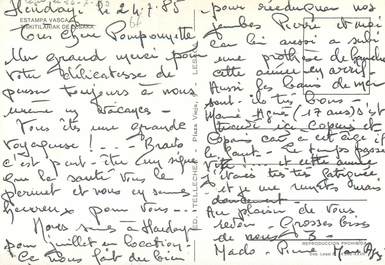 Hendaye le 24.7.85
ESTAMPA VASCA
Ma chère Pomponnette
Un grand merci pour
votre délicatesse de
penser toujours à nous
même en vacances
Vous êtes une grande
voyageuse !... Bravo
c'est peut-être un signe
que la santé vous le
permet et nous en sommes
heureux pour vous...
Nous sommes à Hendaye
pour juillet en location.
Ce nous fait du bien
pour rééduquer nos
jambes Pierre et moi
car lui aussi a subi
une prothèse de hanche
cette année en avril
Aussi les bains de mer
sont de très bons
Marie Agnès (17 ans) est
copains car à cet âge il
le faut. Le temps passe
vite et cette année
j'étais très très fatiguée
et je me remets mais
doucement
Au plaisir de vous
revoir. Grosses bises
de nous 3
Mado - Pierre
REPRODUCCION PROHIBIDA